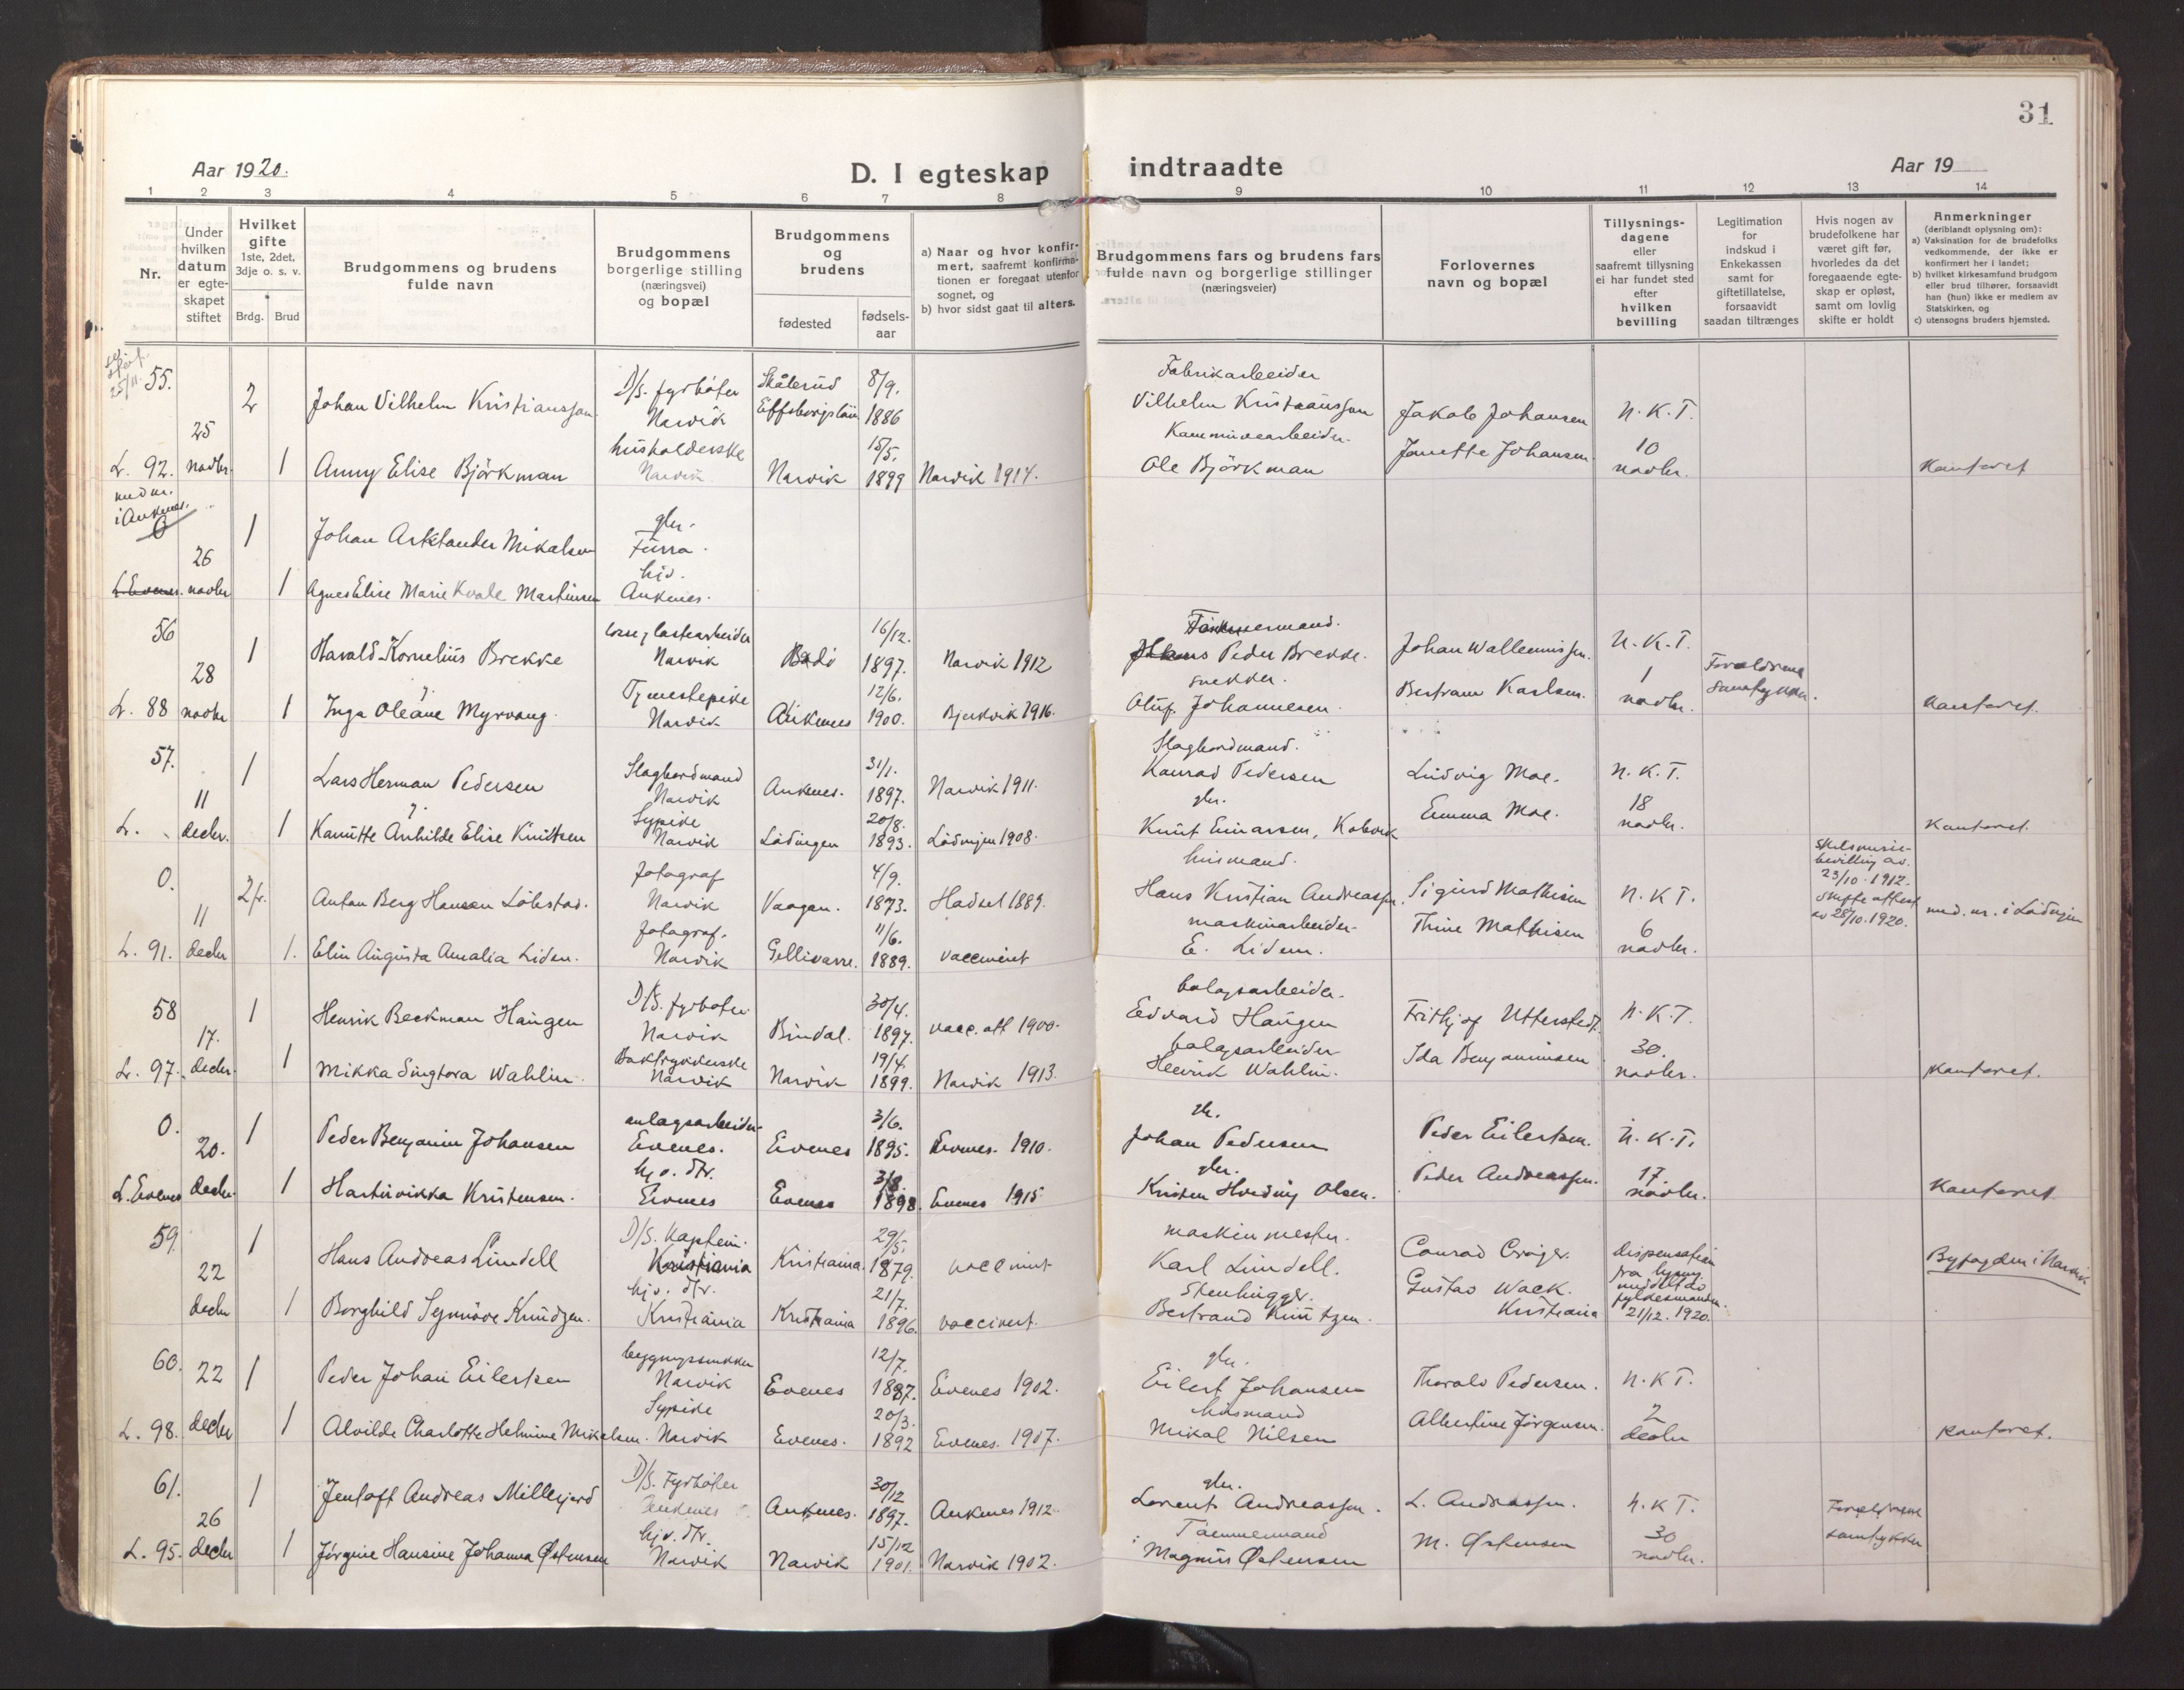 31
Aar 1920.
D. I egteskap indtraadte
Aar 19
1 2 3 4 5 6 7 8 9 10 11 12 13 14
Nr.
Under hvilken datum er egte-skapet stiftet
Hvilket gifte 1ste, 2det, 3dje o. s. v.
Brdg. Brud
Brudgommens og brudens fulde navn
Brudgommens borgerlige stilling (næringsvei) og bopæl
Brudgommens og brudens
fødested
fødsels-aar
a) Naar og hvor konfir-mert, saafremt konfirma-tionen er foregaat utenfor sognet, og
b) hvor sidst gaat til alters.
Brudgommens fars og brudens fars fulde navn og borgerlige stillinger (næringsveier)
Forlovernes navn og bopæl
Tillysnings-dagene eller saafremt tillysning ei har fundet sted efter hvilken bevilling
Legitimation for indskud i Enkekassen samt for giftetillatelse, forsaavidt saadan tiltrænges
Hvis nogen av brudefolkene har været gift før, hvorledes da det foregaaende egte-skap er opløst, samt om lovlig skifte er holdt
Anmerkninger (deriblandt oplysning om):
a) Vaksination for de brudefolks vedkommende, der ikke er konfirmert her i landet;
b) hvilket kirkesamfund brudgom eller brud tilhører, forsaavidt han (hun) ikke er medlem av Statskirken, og
c) utensogns bruders hjemsted.
55. 2 Johan Vilhelm Kristiansson D/S. fyrbøter Narvik Skålerud 8/9. 1886 Fabrikarbeider Vilhelm Kristiansson Jakob Johansen N.K.T.
L. 92. 25 novbr. 1 Anny Elise Björkman husholderske Narvik Narvik 15/5. 1899 Narvik 1914. Ole Björkman Janette Johansen 10 novbr. Kontoret
i Ankenes. 0 26 1 Johan Mikalsen gbr.
L. Evenes. novbr 1 Agnes Elise Marie Kvale Martinsen Ankenes.
56 28 1 Harald Kornelius Brekke Narvik Bodö 16/12. 1897. Narvik 1912 Tømmermand. Peder Brekke. Johan Wallenius N.K.T. Forældrenes samtykke.
L. 88 novbr 1 Inga Oleane Myrvang. Tjenestepike Narvik Ankenes 12/6. 1900. Bjerkvik 1916. snekker. Oluf Johannesen. Bertram Karlsen. 1 novbr. Kontoret.
57. 11 1 Lars Herman Pedersen Slagbordmand Narvik Ankenes. 31/1. 1897. Narvik 1911. Slagbordmand. Konrad Pedersen Ludvig Moe. N.K.T.
L. decbr. 1 Kanutte Anhilde Elise Knutsen Sypike Narvik Lödingen 20/8. 1893. Lödingen 1908. gbr. Knut Einarsen, Kobvik Emma Moe. 18 novbr. Kontoret.
0. 11 2 fr. Anton Berg Hansen Löbstad. fotograf Narvik Vaagan. 4/9. 1873. Hadsel 1889. husmand. Hans Kristian Andreassen. Sigurd Mathisen N.K.T. Skilsmisse-bevilling av. 23/10. 1912. Skifte attest av 28/10. 1920. med. nr. i Lödingen
L. 91. decbr 1. Elin Augusta Amalia Liden. fotograf. Narvik Gellivarre. 11/6. 1889. vaccinert maskinarbeider. E. Liden. Thine Mathisen 6 novbr.
58 17. 1 Henrik Beckman Haugen D/S. fyrbøter Narvik Bindal. 30/4. 1897. vacc. att 1900. bolagsarbeider. Edvard Haugen Frithjof Utterstedt. N.K.T.
L. 97. decbr. 1 Mikka Singtora Wahlin. Narvik Narvik 19/4. 1899. Narvik 1913. bolagsarbeider Henrik Wahlin. Ida Benjaminsen 30. novbr. Kontoret.
0. 20. 1 Peder Benjamin Johansen anlagsarbeider Evenes. Evenes 3/6. 1895. Evenes. 1910. gbr. Johan Pedersen Peder Eilertsen. N.K.T.
L. Evenes decbr. 1 Hartvikka Kristensen. hjv. dtr. Evenes Evenes 3/8. 1898. Evenes 1915 gbr. Kristen Hveding Olsen. Peder Andreassen. 17 novbr. Kontoret
59. 22 1 Hans Andreas Lundell D/S. Kaptein. Kristiania Kristiania. 29/5. 1879. vaccinert maskinmester. Karl Lundell. Conrad Dispensation fra lysning meddelt av fylkesmanden. 21/12. 1920. Byfogden i Narvik
decbr 1 Borghild Synnöve Knudzen. hjv. dtr. Kristiania Kristiania 21/7. 1896. vaccinert. Stenhugger. Bertrand Knutzen. Gustav Waek. Kristiania
60. 22 1 Peder Johan Eilertsen bygningssnekker Narvik Evenes 12/7. 1887. Evenes 1902. gbr. Eilert Johansen Thoralv Pedersen. N.K.T.
L. 98. decbr 1 Alvilde Charlotte Helmine Mikalsen. Sypike Narvik Evenes. 20/3. 1892 Evenes. 1907. Husmand Mikal Nilsen Albertine Jørgensen. 2 decbr Kontoret.
61. 26 1 Jentoft Andreas Millerjord D/S. Fyrbøter Ankenes Ankenes. 30/12 1897. Ankenes 1912. gbr. Lorents Andreassen. L. Andreassen. N.K.T. Forældrene samtykker
L. 95. decbr 1 Jørgine Hansine Johanna Østensen hjv. dtr. Narvik Narvik 15/12 1901. Narvik 1902. Tømmermand Magnus Østensen M. Østensen 30 novbr.